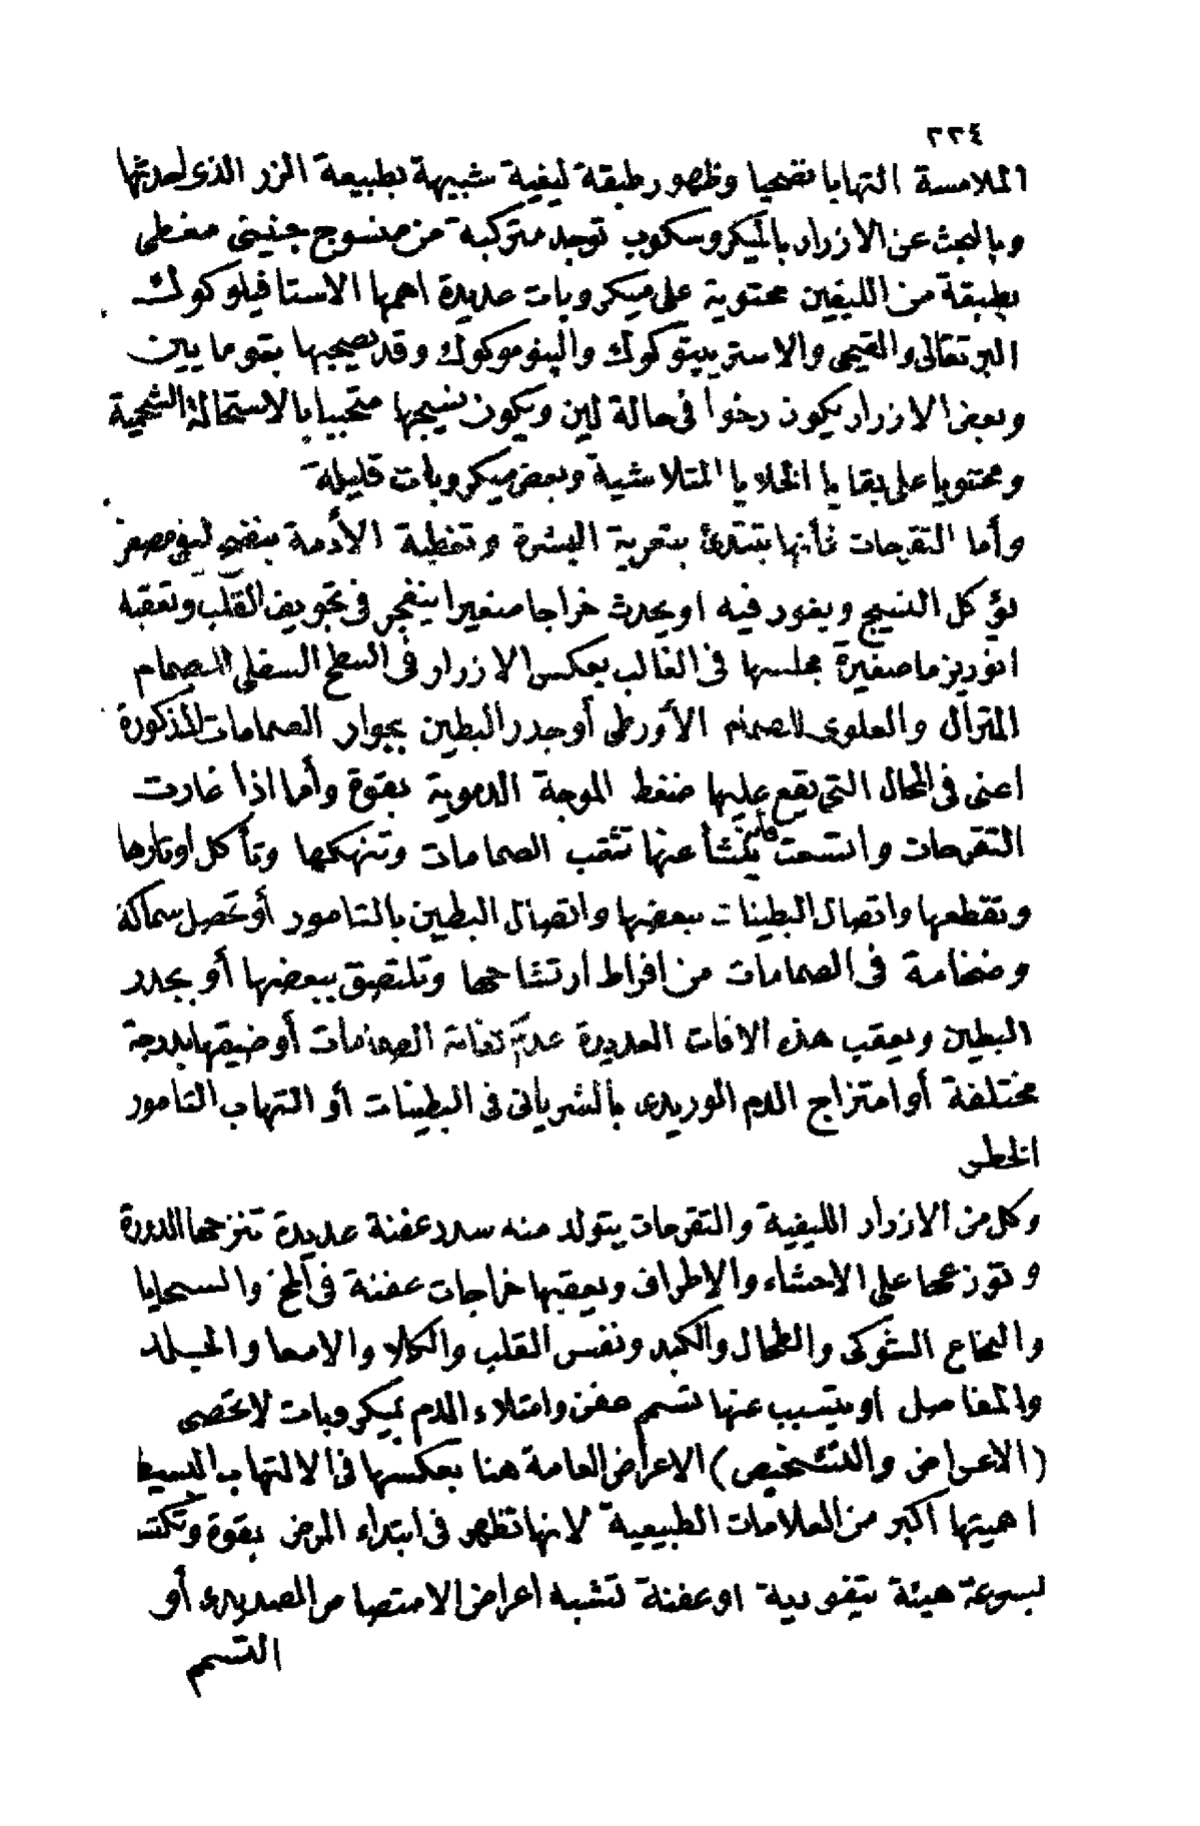 ٢٢٤
الملامسة التهابا نضحيا وظهور طبقة ليفية شبيهة بطبيعة الزر الذى احدثها
وبالبحث عن الازرار بالميكروسكوب توجد متركبة من منسوج جنينى مغطى
بطبقة من الليفين محتوية على ميكروبات عديدة اهمها الاستافيلوكوك
البرتقالى والقيحى والاستربتوكوك والپنوموكوك وقد يصحبها بقوما يين
وبعض الازرار يكون رخوا فى حالة لين ويكون نسيجها متحببا بالاستحالة الشحمية
ومحتويا على بقايا الخلايا المتلاشية وبعض ميكروبات قليلة
وأما التقرحات فأنها تبتدئ بتعرية البشرة وتغطية الأدمة بنضح ليفى مصفر
يؤكل النسيج ويغور فيه او يحدث خراجا صغيرا ينفجر فى تجويف القلب وتعقبه
انوريزما صغيرة مجلسها فى الغالب بعكس الازرار فى السطح السفلى للصمام
المترال والعلوى للصمام الأورطى أو جدر البطين بجوار الصمامات المذكورة
اعنى فى المحال التى يقع عليها ضغط الموجة الدموية بقوة وأما اذا غارت
التقرحات واتسعت فأنه ينشأ عنها تثقب الصمامات وتنهكها وتأكل اوتارها
وتقطعها واتصال البطينات ببعضها واتصال البطين بالتامور أو تحصل سماكة
وضخامة فى الصمامات من افراط ارتشاحها وتلتصق ببعضها أو بجدر
البطين ويعقب هذه الافات العديدة عدم كفاية الصمامات أو ضيقها بدرجة
مختلفة أو امتزاج الدم الوريدى بالشريانى فى البطينات أو التهاب التامور
الخطر
وكل من الازرار الليفية والتقرحات يتولد منه سدد عفنة عديدة تنزحها الدورة
وتوزعها على الاحشاء والاطراف ويعقبها خراجات عفنة فى المخ والسحايا
والنخاع الشوكى والطحال والكبد ونفس القلب والكلا والامعا والجلد
والمفاصل او يتسبب عنها تسمم عفن وامتلاء الدم بميكروبات لا تحصى
(الاعراض والتشخيص) الاعراض العامة هنا بعكسها فى الالتهاب البسيط
اهميتها اكبر من العلامات الطبيعية لانها تظهر فى ابتداء المرض بقوة وتكتسب
بسرعة هيئة تيفودية او عفنة تشبه اعراض الامتصاص الصديدى أو
التسمم